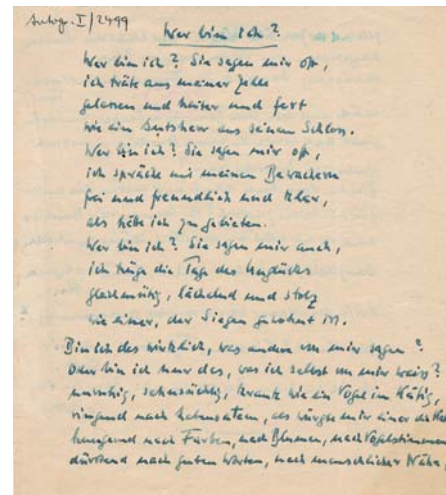 Autogr. I/2499
Wer bin ich?
Wer bin ich? Sie sagen mir oft,
ich träte aus meiner Zelle
gelassen und heiter und fest
wie ein Gutsherr aus seinem Schloss.
Wer bin ich? Sie sagen mir oft,
ich spräche mit meinen Bewachern
frei und freundlich und klar,
als hätte ich zu gebieten.
Wer bin ich? Sie sagen mir auch,
ich trüge die Tage des Unglücks
gleichmütig, lächelnd und stolz
wie einer, der Siegen gewohnt ist.
Bin ich das wirklich, was andere von mir sagen?
Oder bin ich nur das, was ich selbst von mir weiss?
unruhig, sehnsüchtig, krank wie ein Vogel im Käfig,
ringend nach Lebensatem, als würgte mir einer die
hungernd nach Farben, nach Blumen, nach Vogelstimmen
dürstend nach guten Worten, nach menschlicher Nähe,